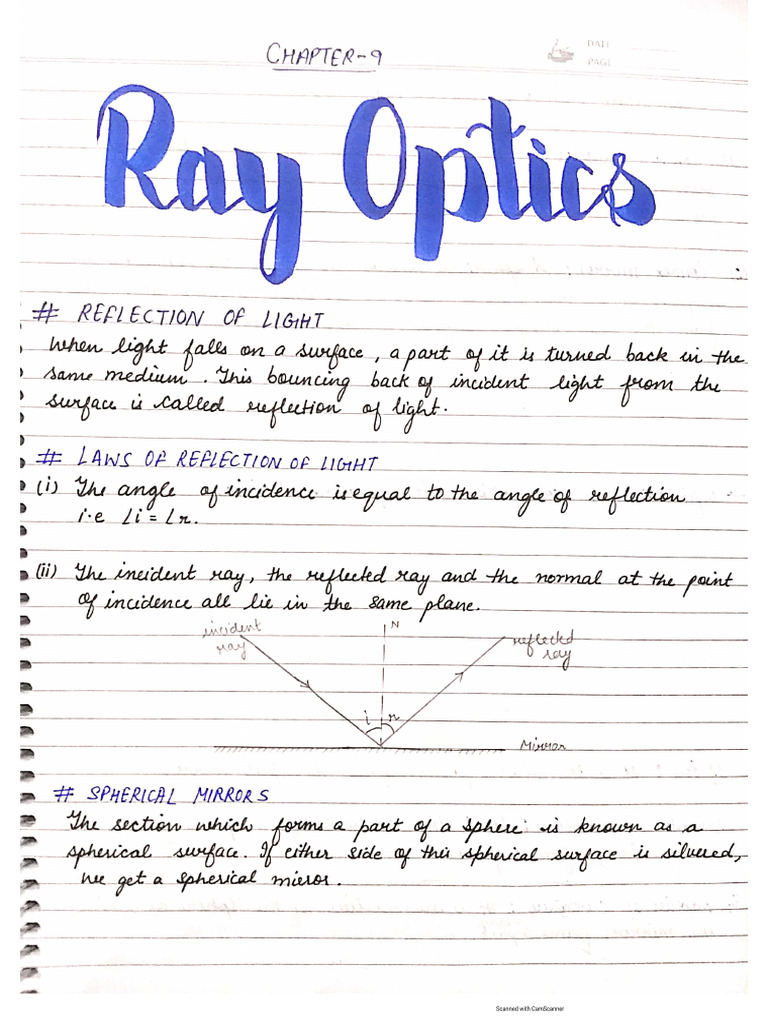 CHAPTER-9
DATE
PAGE
Ray Optics
# REFLECTION OF LIGHT
When light falls on a surface, a part of it is turned back in the
same medium. This bouncing back of incident light from the
surface is called reflection of light.
# LAWS OF REFLECTION OF LIGHT
(i) The angle of incidence is equal to the angle of reflection
i.e ∠i = ∠r.
(ii) The incident ray, the reflected ray and the normal at the point
of incidence all lie in the same plane.
incident
ray
N
reflected
ray
i
r
Mirror
# SPHERICAL MIRRORS
The section which forms a part of a sphere is known as a
spherical surface. If either side of this spherical surface is silvered,
we get a spherical mirror.
Scanned with CamScanner